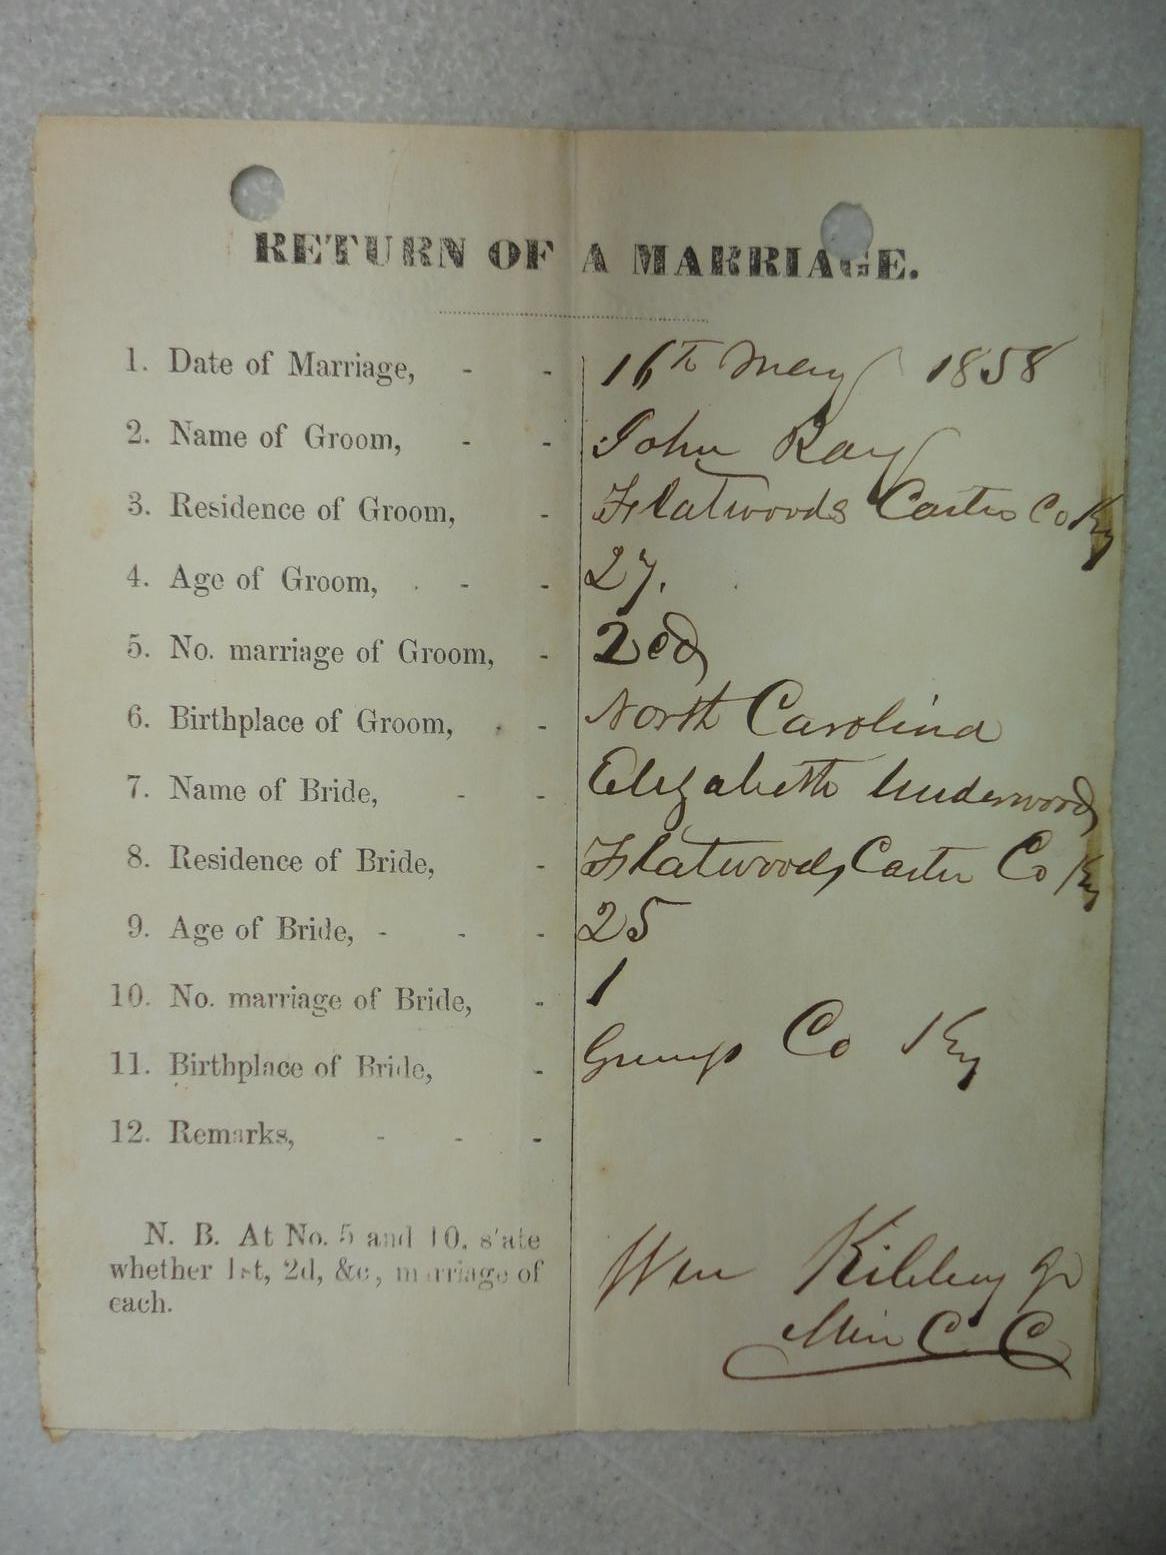 RETURN OF A MARRIAGE.
1. Date of Marriage, - - 16th May 1858
2. Name of Groom, - - John Ray
3. Residence of Groom, - Flatwoods Carter Co Ky
4. Age of Groom, - - 27.
5. No. marriage of Groom, - 2ed
6. Birthplace of Groom, - North Carolina
7. Name of Bride, - - Elizabeth Underwood
8. Residence of Bride, - Flatwoods Carter Co Ky
9. Age of Bride, - - - 25
10. No. marriage of Bride, - 1
11. Birthplace of Bride, - Co Ky
12. Remarks, - - -
N. B. At No. 5 and 10, state
whether 1st, 2d, &c, marriage of
each.
Wm Kibbey Jr
Min C C